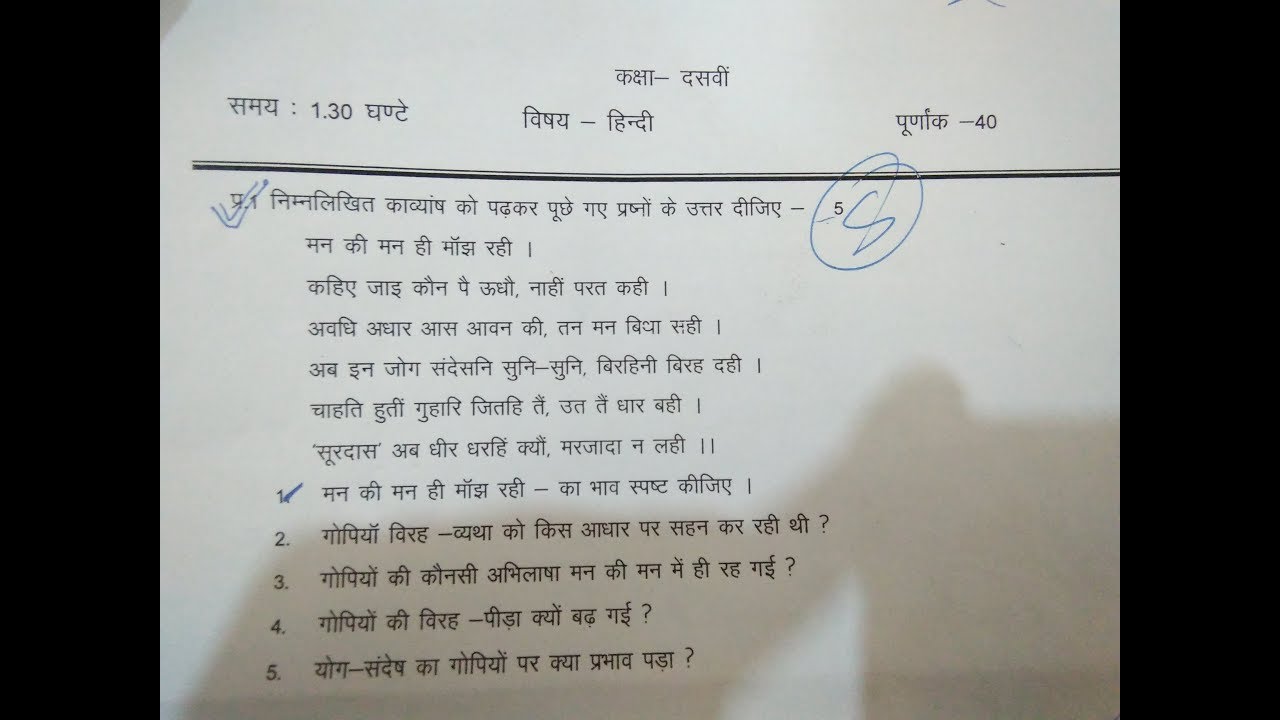 कक्षा– दसवीं
समय : 1.30 घण्टे विषय – हिन्दी पूर्णांक –40
प्र.1 निम्नलिखित काव्यांष को पढ़कर पूछे गए प्रष्नों के उत्तर दीजिए – 5
मन की मन ही मॉझ रही ।
कहिए जाइ कौन पै ऊधौ, नाहीं परत कही ।
अवधि अधार आस आवन की, तन मन बिथा सही ।
अब इन जोग संदेसनि सुनि–सुनि, बिरहिनी बिरह दही ।
चाहति हुतीं गुहारि जितहि तैं, उत तैं धार बही ।
'सूरदास' अब धीर धरहिं क्यौं, मरजादा न लही ।।
1. मन की मन ही मॉझ रही – का भाव स्पष्ट कीजिए ।
2. गोपियॉ विरह –व्यथा को किस आधार पर सहन कर रही थी ?
3. गोपियों की कौनसी अभिलाषा मन की मन में ही रह गई ?
4. गोपियों की विरह –पीड़ा क्यों बढ़ गई ?
5. योग–संदेष का गोपियों पर क्या प्रभाव पड़ा ?